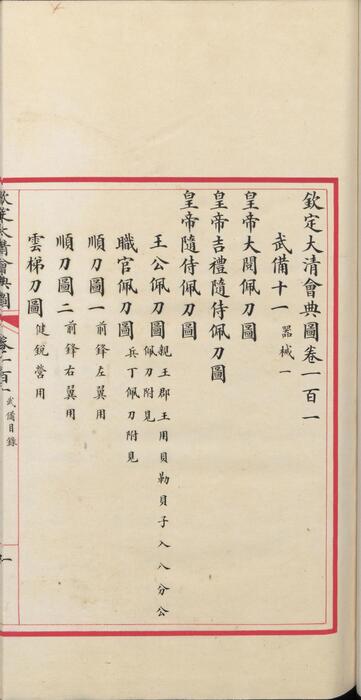 欽定大清會典圖卷一百一
武備十一 器械一
皇帝大閱佩刀圖
皇帝吉禮隨侍佩刀圖
皇帝隨侍佩刀圖
王公佩刀圖 親王郡王用貝勒貝子入八分公
佩刀附見
職官佩刀圖 兵丁佩刀附見
順刀圖一 前鋒左翼用
順刀圖二 前鋒右翼用
雲梯刀圖 健銳營用
欽定大清會典圖 卷一百一 武備目錄 一